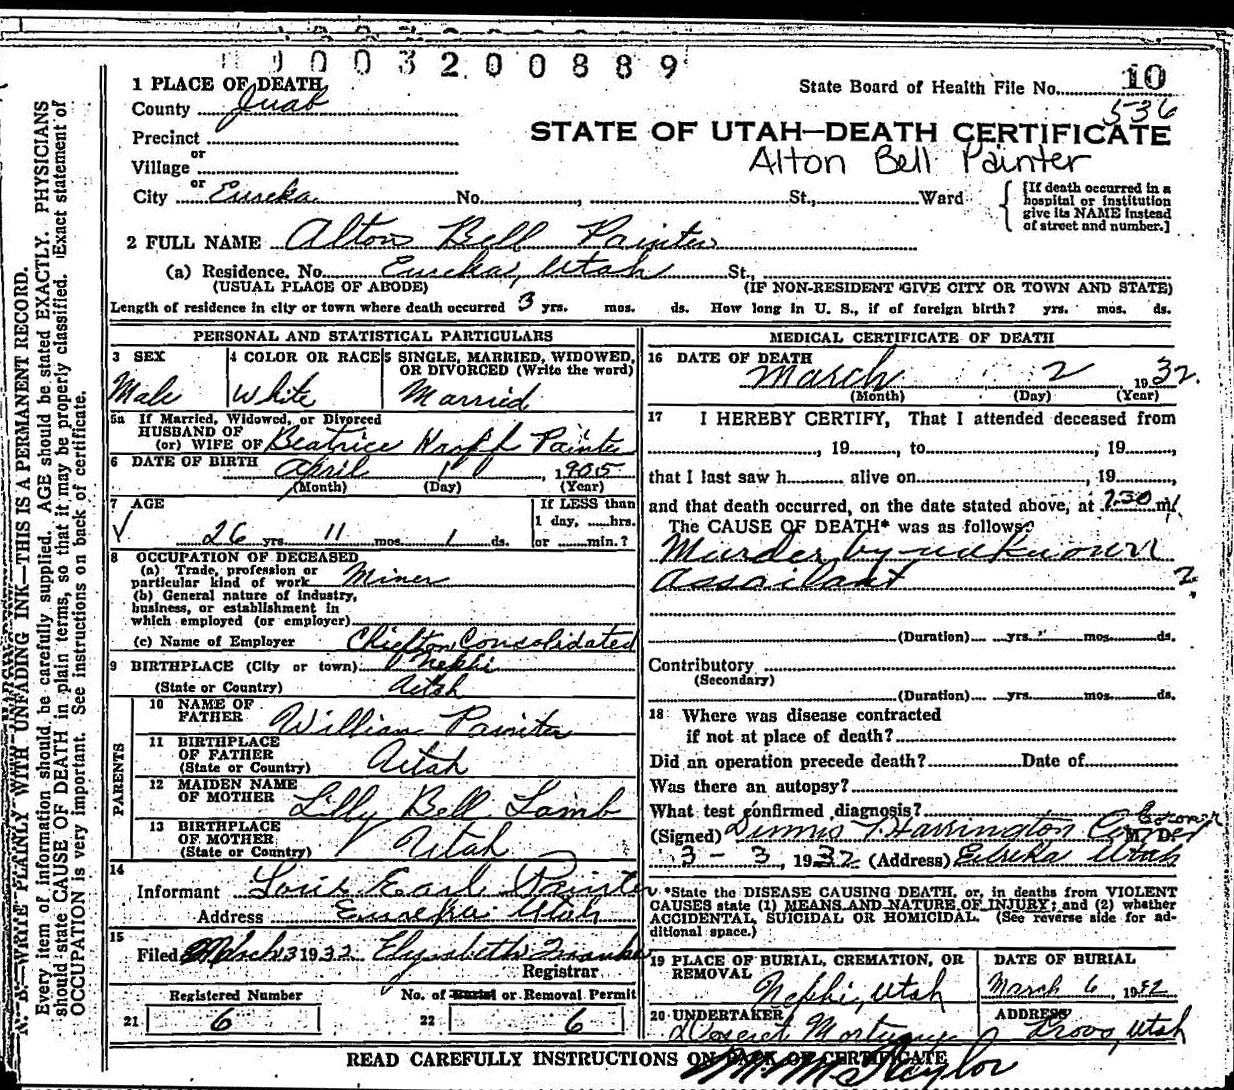 0 0 3 2 0 0 8 8 9
1 PLACE OF DEATH
State Board of Health File No. 10
County Juab
536
Precinct
STATE OF UTAH—DEATH CERTIFICATE
or
Village
Alton Bell Painter
or
City Eureka No. , St., Ward
[If death occurred in a hospital or institution give its NAME instead of street and number.]
2 FULL NAME Alton Bell Painter
(a) Residence. No. Eureka, Utah St.,
(USUAL PLACE OF ABODE) (IF NON-RESIDENT GIVE CITY OR TOWN AND STATE)
Length of residence in city or town where death occurred 3 yrs. mos. ds. How long in U. S., if of foreign birth? yrs. mos. ds.
PERSONAL AND STATISTICAL PARTICULARS
3 SEX
Male
4 COLOR OR RACE
White
5 SINGLE, MARRIED, WIDOWED, OR DIVORCED (Write the word)
Married
5a If Married, Widowed, or Divorced
HUSBAND OF
(or) WIFE OF Beatrice Kropf Painter
6 DATE OF BIRTH April 1 1905
(Month) (Day) (Year)
7 AGE
26 yrs. 11 mos. 1 ds.
If LESS than
1 day, hrs.
or min.?
8 OCCUPATION OF DECEASED
(a) Trade, profession or
particular kind of work Miner
(b) General nature of industry,
business, or establishment in
which employed (or employer)
(c) Name of Employer Consolidated
9 BIRTHPLACE (City or town) Nephi
(State or Country) Utah
PARENTS
10 NAME OF FATHER William Painter
11 BIRTHPLACE OF FATHER (State or Country) Utah
12 MAIDEN NAME OF MOTHER Lilly Bell Lamb
13 BIRTHPLACE OF MOTHER (State or Country) Utah
14
Informant Earl Painter
Address Eureka Utah
15
Filed March 3 1932 Elizabeth Franks
Registrar
Registered Number No. of Burial or Removal Permit
21 6 22 6
MEDICAL CERTIFICATE OF DEATH
16 DATE OF DEATH
March 2 1932.
(Month) (Day) (Year)
17 I HEREBY CERTIFY, That I attended deceased from
, 19 , to , 19 ,
that I last saw h alive on , 19 ,
and that death occurred, on the date stated above, at 7:30 m.
The CAUSE OF DEATH* was as follows:
Murder by unknown
assailant
2
(Duration) yrs. mos. ds.
Contributory
(Secondary)
(Duration) yrs. mos. ds.
18 Where was disease contracted
if not at place of death?
Did an operation precede death? Date of
Was there an autopsy?
What test confirmed diagnosis?
(Signed) Harrington Coroner M. D.
3 - 3, 1932 (Address) Eureka Utah
*State the DISEASE CAUSING DEATH, or, in deaths from VIOLENT
CAUSES state (1) MEANS AND NATURE OF INJURY; and (2) whether
ACCIDENTAL, SUICIDAL OR HOMICIDAL. (See reverse side for ad-
ditional space.)
19 PLACE OF BURIAL, CREMATION, OR REMOVAL
Nephi, Utah
DATE OF BURIAL
March 6, 1932
20 UNDERTAKER
Deseret Mortuary
ADDRESS
Provo, Utah
READ CAREFULLY INSTRUCTIONS ON BACK OF CERTIFICATE
Taylor
N. B.—WRITE PLAINLY WITH UNFADING INK—THIS IS A PERMANENT RECORD.
Every item of information should be carefully supplied. AGE should be stated EXACTLY. PHYSICIANS
should state CAUSE OF DEATH in plain terms, so that it may be properly classified. Exact statement of
OCCUPATION is very important. See instructions on back of certificate.